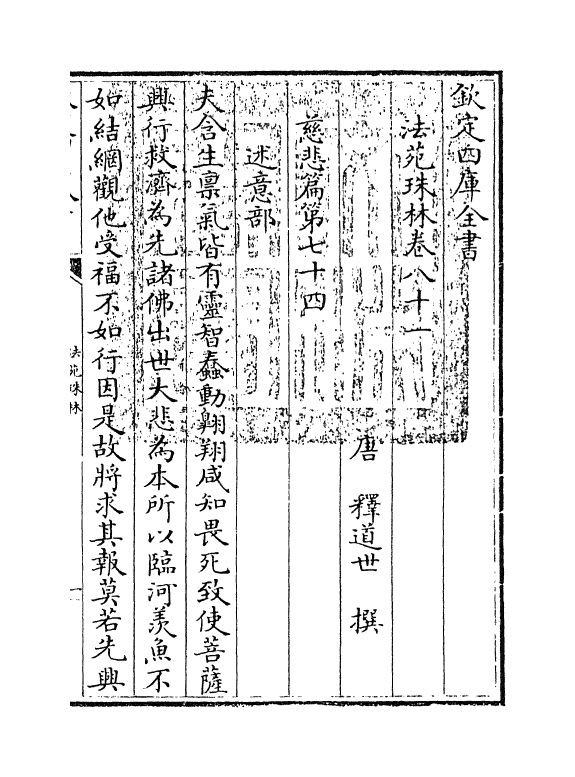 欽定四庫全書
法苑珠林卷八十一
唐 釋道世 撰
慈悲篇第七十四
述意部
夫含生禀氣皆有靈智蠢動翺翔咸知畏死致使菩薩
興行救濟為先諸佛出世大悲為本所以臨河羨魚不
如結網觀他受福不如行因是故將求其報莫若先興
法苑珠林
一